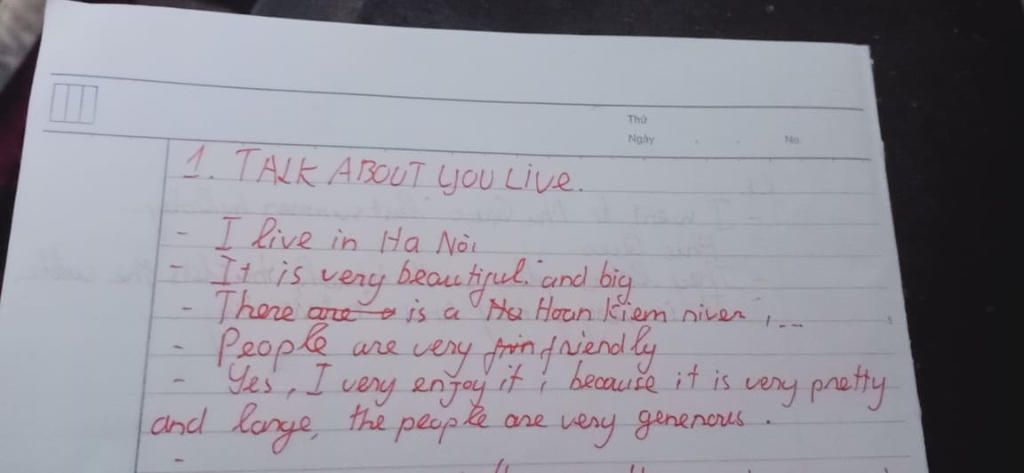 Thứ
Ngày . . No.
1. TALK ABOUT YOU LIVE.
- I live in Ha Nôi
- It is very beautiful. and big
- There are a is a Ho Hoan Kiem river , ...
- People are very frin friendly
- Yes, I very enjoy it , because it is very pretty
and large, the people are very generous .
-